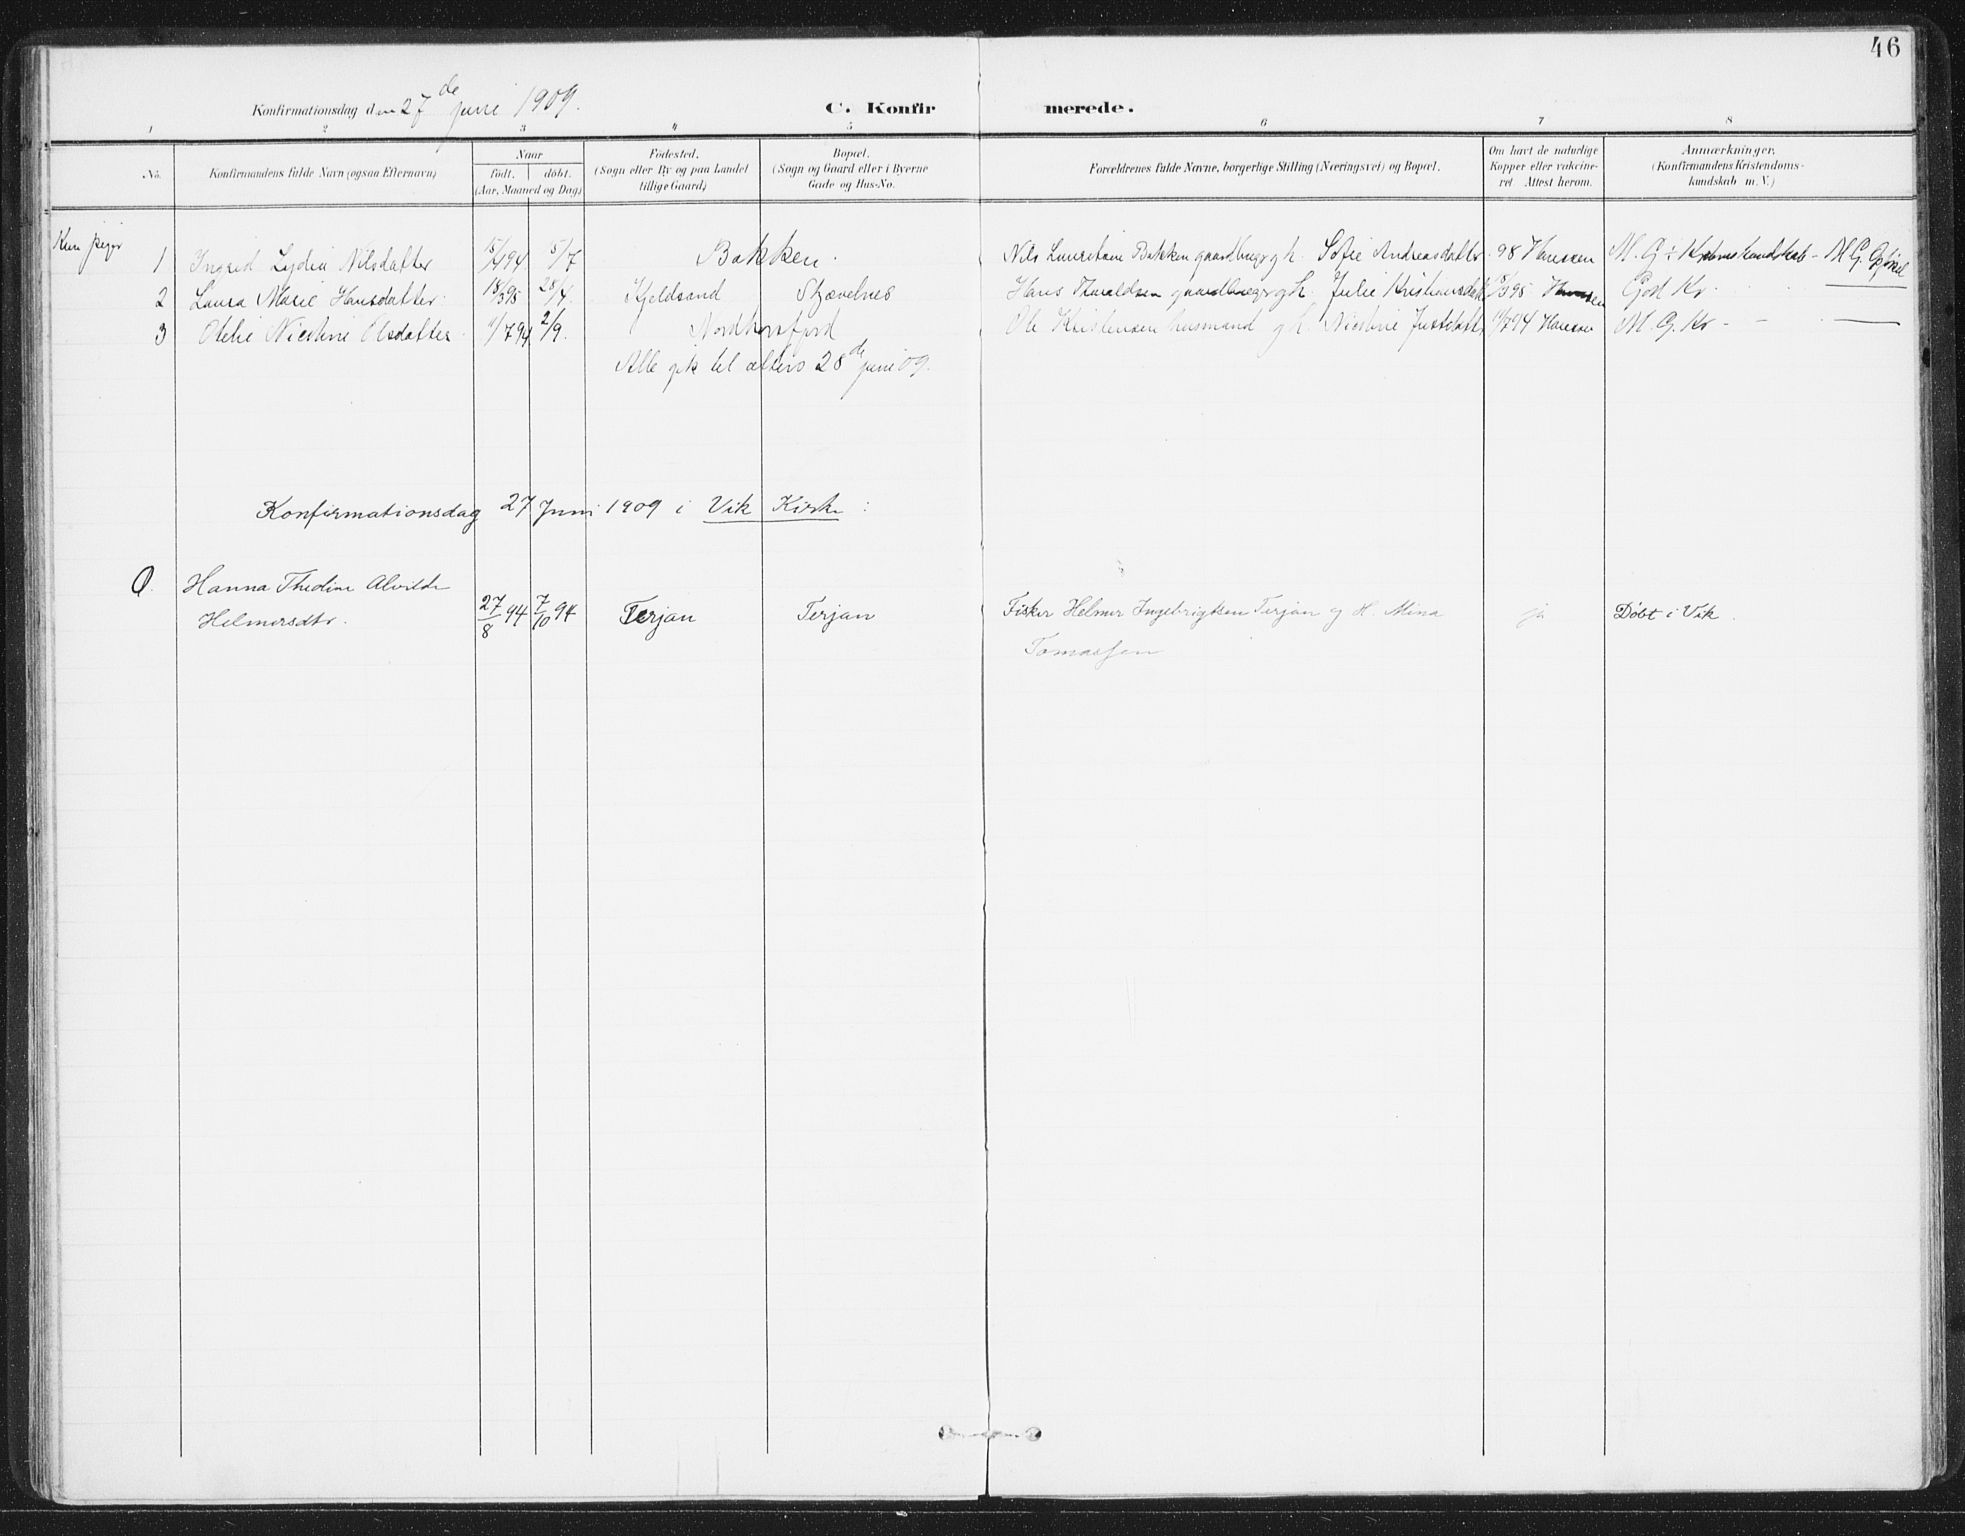 46
Konfirmationsdag den 27de juni 1909.
C. Konfirmerede.
1 2 3 4 5 6 7 8
No.
Konfirmandens fulde Navn (ogsaa Efternavn)
Naar
født. døbt.
(Aar, Maaned og Dag)
Fødested.
(Sogn eller By og paa Landet
tillige Gaard)
Bopæl.
(Sogn og Gaard eller i Byerne
Gade og Hus-No.
Forældrenes fulde Navne, borgerlige Stilling (Næringsvei) og Bopæl.
Om havt de naturlige
Kopper eller vakcine-
ret Attest herom.
Anmærkninger.
(Konfirmandens Kristendoms-
kundskab m. V.)
Kun piger
1 Ingrid Lydia Nilsdatter 15/4 94 5/7 Bakken. Nils Bakken gaardbruger g h. Sofie Andreasdatter 98 Hanssen M. G : Kr.domskundskab - M G
2 Laura Marie Hansdatter 18/3 95 28/4 Kjeldsand Hans Tharaldsen g h. Julie 95 God Kr.
3 Otelie Nicoline Olsdatter 1/7 94 2/9. Ole Kristensen husmand g h. Nicoline 1/7 94 Hanssen M. G. Kr - - . —
Alle gik til alters 28de juni 09.
Konfirmationsdag 27 Juni 1909 i Vik Kirke:
Hanna Thedine Alvilde
Helmersdtr. 27/8 94 7/10 94 Terjan Terjan Fisker Helmer Ingebrigtsen Terjan og H. Mina ja Døbt i Vik.
Tomassen